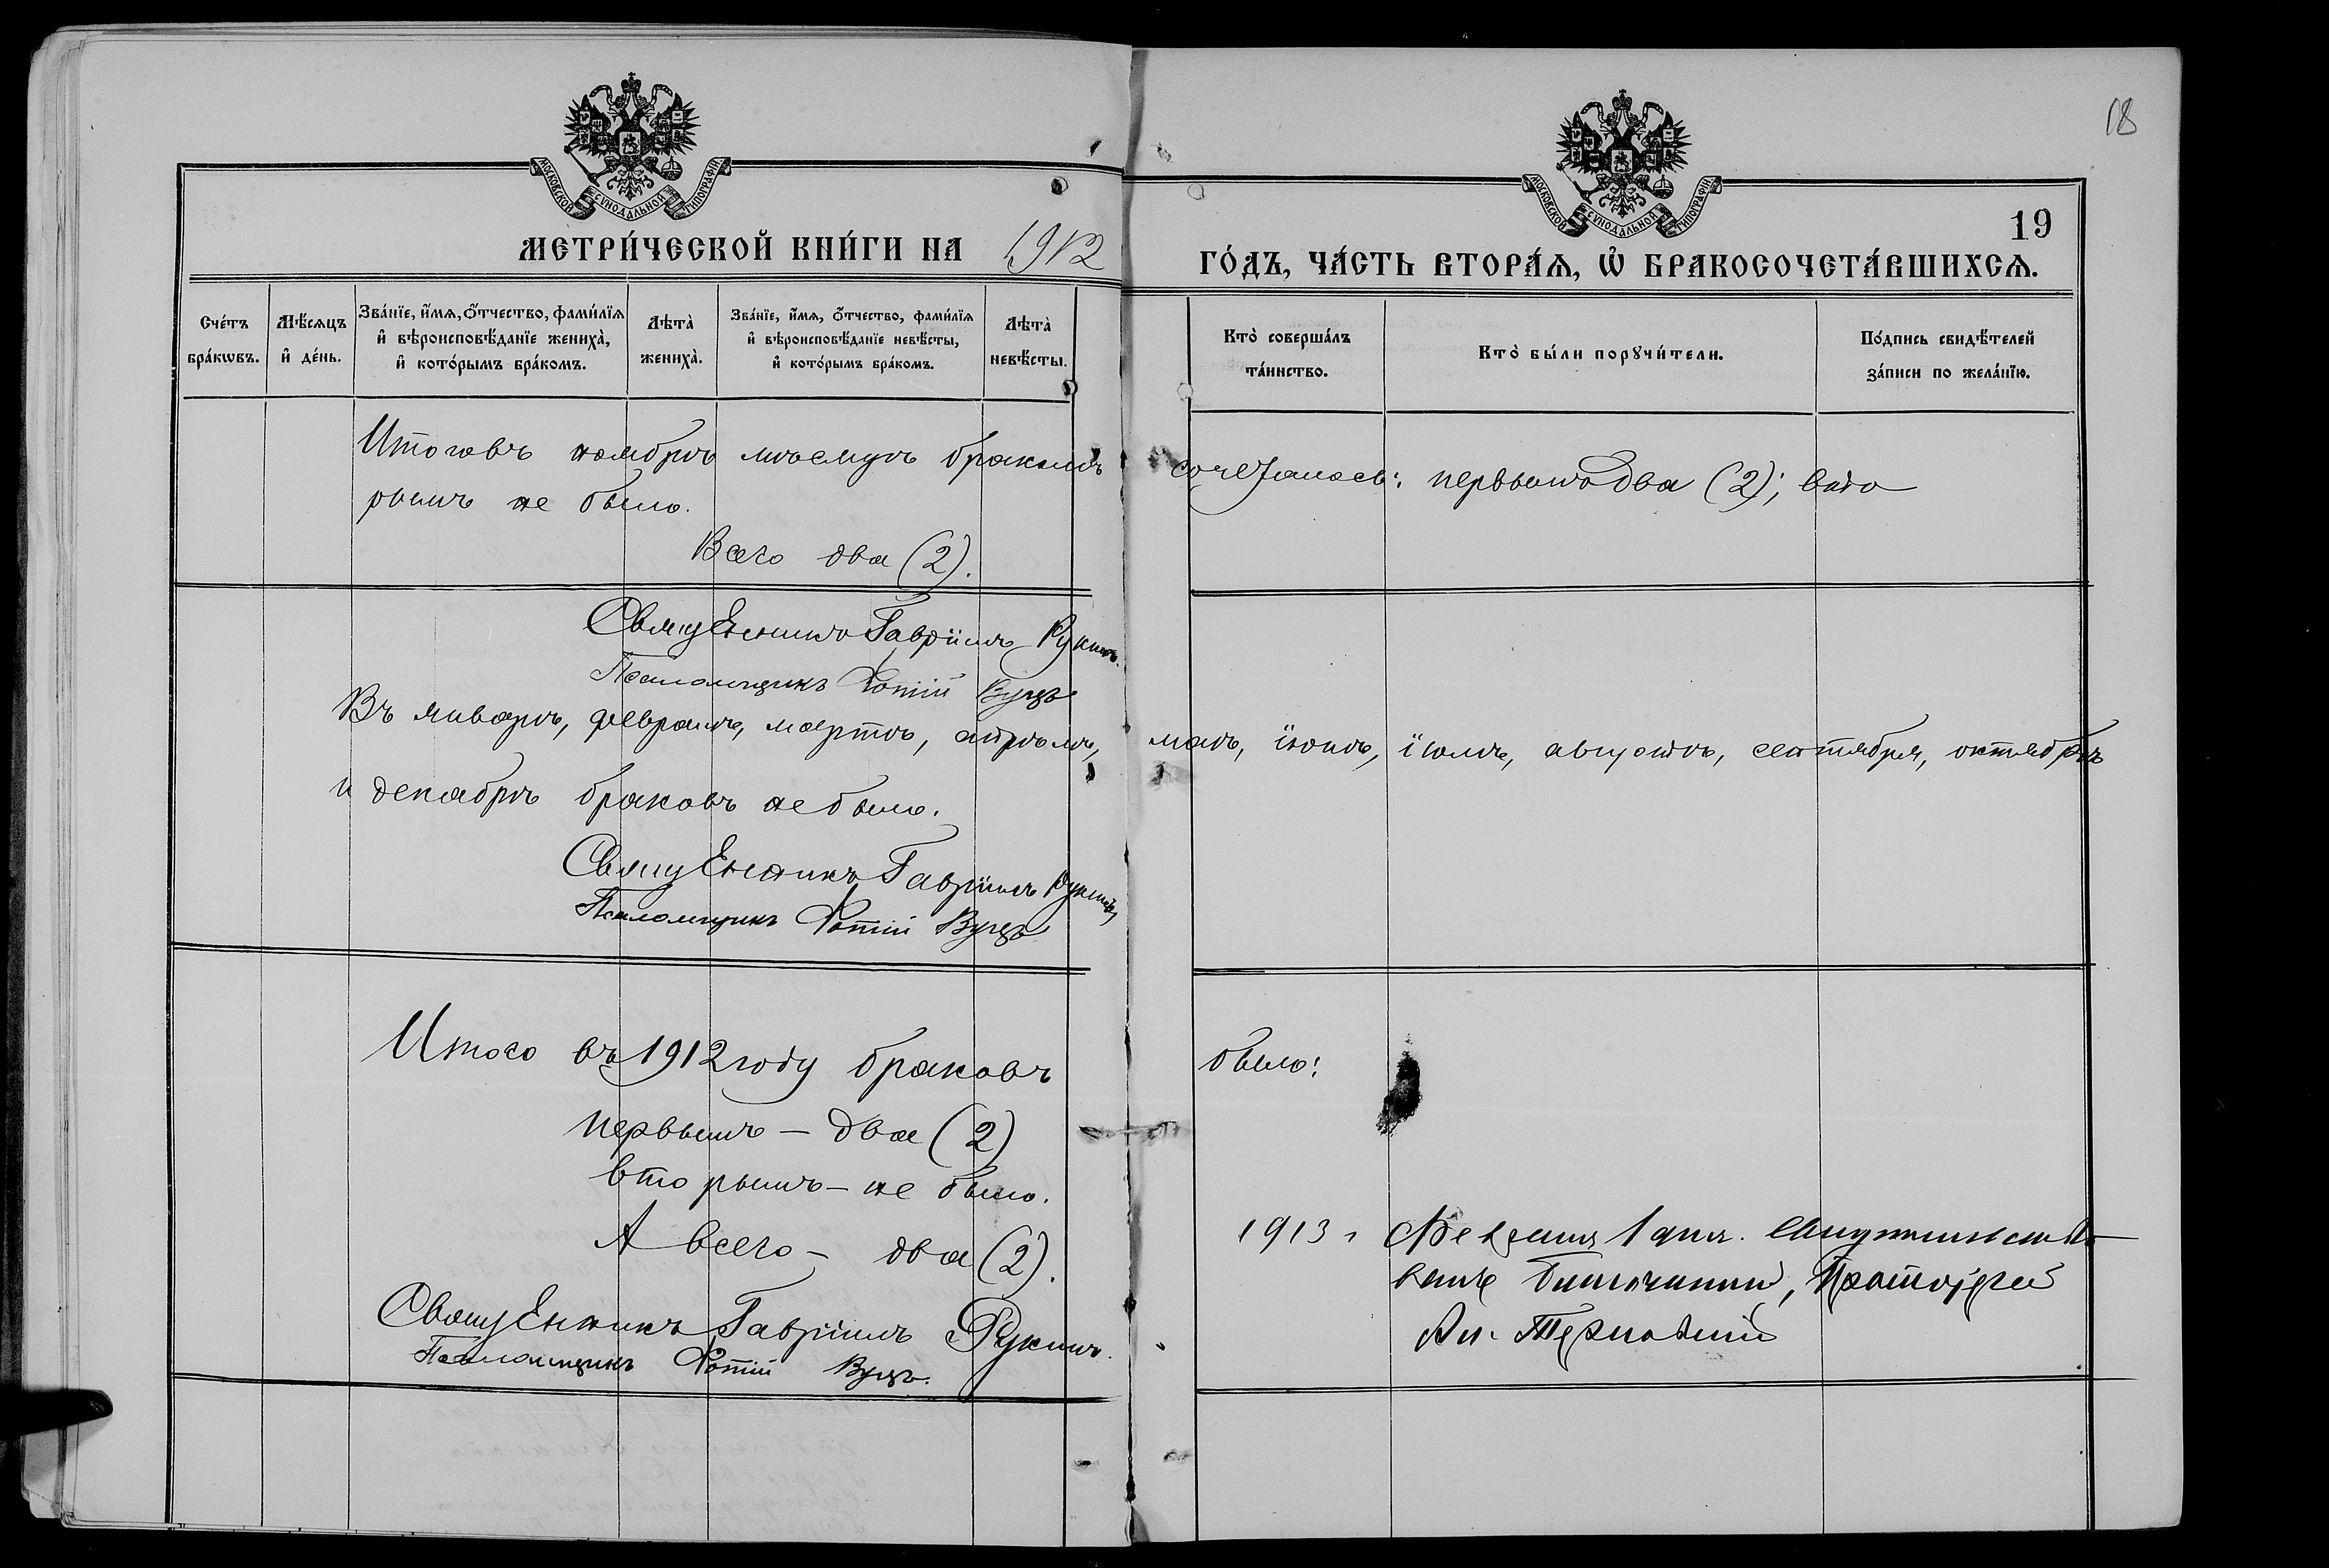 18
МОСКОВСКОЙ СУНОДАЛЬНОЙ ТИПОГРАФІИ
МОСКОВСКОЙ СУНОДАЛЬНОЙ ТИПОГРАФІИ.
19
МЕТРИ́ЧЕСКОЙ КНИ́ГИ НА 1912 ГО́ДЪ, ЧА́СТЬ ВТОРА́Ѧ, Ѡ҆ БРАКОСОЧЕТА́ВШИХСѦ.
Сче́тъ бра́кѡвъ.
Мѣ́сѧцъ и҆ де́нь.
Зва́нїе, и҆́мѧ, ѻ҆́тчество, фами́лїѧ и҆ вѣроисповѣ́данїе жениха̀, и҆ кото́рымъ бра́комъ.
Лѣта̀ жениха̀.
Зва́нїе, и҆́мѧ, ѻ҆́тчество, фами́лїѧ и҆ вѣроисповѣ́данїе невѣ́сты, и҆ кото́рымъ бра́комъ.
Лѣта̀ невѣ́сты.
Кто̀ соверша́лъ та́инство.
Кто̀ бы́ли порꙋчи́тели.
По́дпись свидѣ́телей за́писи по жела́нїю.
Итого въ ноябрѣ мѣсяцѣ бракомъ сочеталось: первымъ два (2); вто
рымъ не было.
Всего два (2).
Священникъ Гавріилъ Рукинъ.
Псаломщикъ Фотій Вуцъ
Въ январѣ, февралѣ, мартѣ, апрѣлѣ, маѣ, іюнѣ, іюлѣ, августѣ, сентябрѣ, октябрѣ
и декабрѣ браковъ не было.
Священникъ Гавріилъ Рукинъ,
Псаломщикъ Фотій Вуцъ
Итого въ 1912 году браковъ было:
первымъ – два (2)
вторымъ – не было.
А всего – два (2).
Священникъ Гавріилъ Рукинъ.
Псаломщикъ Фотій Вуцъ.
1913 г. Февраля 1 дня.
Благочинный, Протоіерей